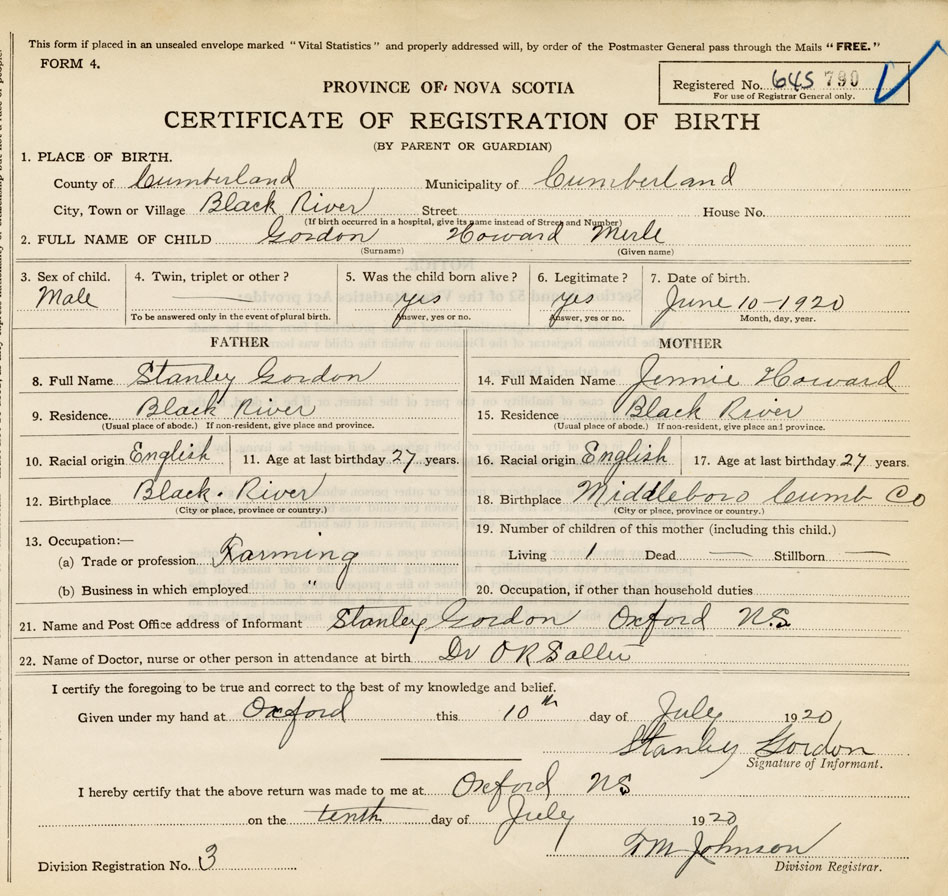 This form if placed in an unsealed envelope marked "Vital Statistics" and properly addressed will, by order of the Postmaster General pass through the Mails "FREE."
FORM 4.
Registered No. 645 790
For use of Registrar General only.
PROVINCE OF NOVA SCOTIA
CERTIFICATE OF REGISTRATION OF BIRTH
(BY PARENT OR GUARDIAN)
1. PLACE OF BIRTH.
County of Cumberland Municipality of Cumberland
City, Town or Village Black River Street House No.
(If birth occurred in a hospital, give its name instead of Street and Number)
2. FULL NAME OF CHILD Gordon Howard Merle
(Surname) (Given name)
3. Sex of child. 4. Twin, triplet or other? 5. Was the child born alive? 6. Legitimate? 7. Date of birth.
Male yes yes June 10-1920
To be answered only in the event of plural birth. Answer, yes or no. Answer, yes or no. Month, day, year.
FATHER MOTHER
8. Full Name Stanley Gordon 14. Full Maiden Name Jennie Howard
9. Residence Black River 15. Residence Black River
(Usual place of abode.) If non-resident, give place and province. (Usual place of abode.) If non-resident, give place and province.
10. Racial origin English 11. Age at last birthday 27 years. 16. Racial origin English 17. Age at last birthday 27 years.
12. Birthplace Black River 18. Birthplace Middleboro Cumb Co
(City or place, province or country.) (City or place, province or country.)
13. Occupation:— 19. Number of children of this mother (including this child.)
(a) Trade or profession Farming Living 1 Dead — Stillborn —
(b) Business in which employed " 20. Occupation, if other than household duties
21. Name and Post Office address of Informant Stanley Gordon Oxford N.S.
22. Name of Doctor, nurse or other person in attendance at birth Dr O R
I certify the foregoing to be true and correct to the best of my knowledge and belief.
Given under my hand at Oxford this 10th day of July 1920
Stanley Gordon
Signature of Informant.
I hereby certify that the above return was made to me at Oxford NS
on the tenth day of July 1920
Johnson
Division Registration No. 3 Division Registrar.